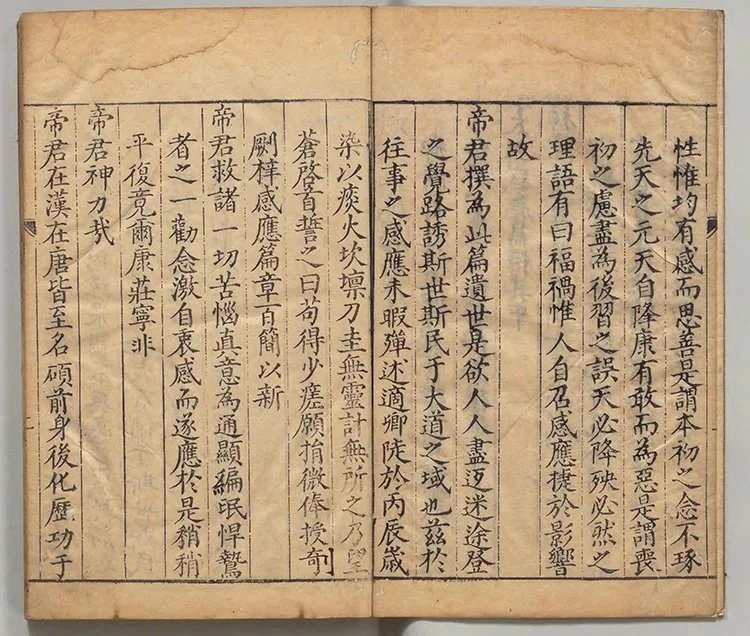 性惟均有感而思善是謂本初之念不琢
先天之元天自降康有敢而為惡是謂喪
初之慮盡為後習之誤天必降殃必然之
理語有曰福禍惟人自召感應捷於影響
故
帝君撰為此篇遺世是欲人人盡返迷途登
之覺路誘斯世斯民于大道之域也茲於
往事之感應未暇殫述適卿陡於丙辰歲
染以痰火坎壈刀圭無靈計無所之乃望
蒼啓首誓之曰苟得少瘥願捐微俸授奇
劂梓感應篇章百簡以新
帝君救諸一切苦惱真意為通顯編氓悍鷙
者之一勸念激自衷感而遂應於是稍稍
平復竟爾康莊寧非
帝君神力哉
帝君在漢在唐皆至名碩前身後化歷功于